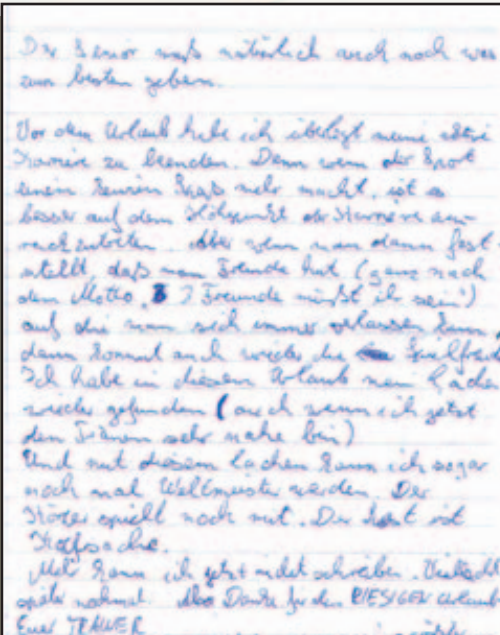 Der Senior muß natürlich auch noch was
zum besten geben.
Vor dem Urlaub habe ich überlegt meine aktive
Karriere zu beenden. Denn wenn der Sport
einem keinen Spaß mehr macht, ist es
besser auf dem Höhepunkt der Karriere zu-
rückzutreten. Aber wenn man dann fest-
stellt, daß man Freunde hat (ganz nach
dem Motto, 7 Freunde müßt ihr sein!)
auf die man sich immer verlassen kann,
dann kommt auch wieder die Spielfreu
Ich habe in diesem Urlaub mein Lachen
wieder gefunden (auch wenn ich jetzt
den Tränen sehr nahe bin)
Und mit diesem Lachen kann ich sogar
noch mal Weltmeister werden. Der
Körper spielt noch mit. Der Rest ist
Kopfsache.
Mehr kann ich jetzt nicht schreiben. Vielleicht
später nochmal. Also Danke für den RIESIGEN Urlaub
Euer TRAINER